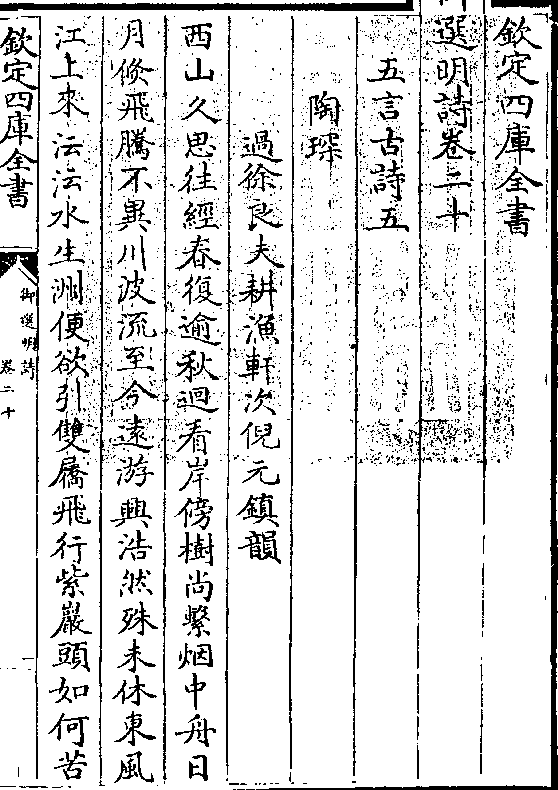 欽定四庫全書
選明詩卷二十
五言古詩五
陶琛
過徐良夫耕漁軒次倪元鎮韻
西山久思往經春復逾秋迴看岸傍樹尚繫烟中舟日
月倐飛騰不異川波流至今遠游興浩然殊未休東風
江上來沄沄水生洲便欲引雙屩飛行紫巖頭如何苦
欽定四庫全書
御選明詩
卷二十
一